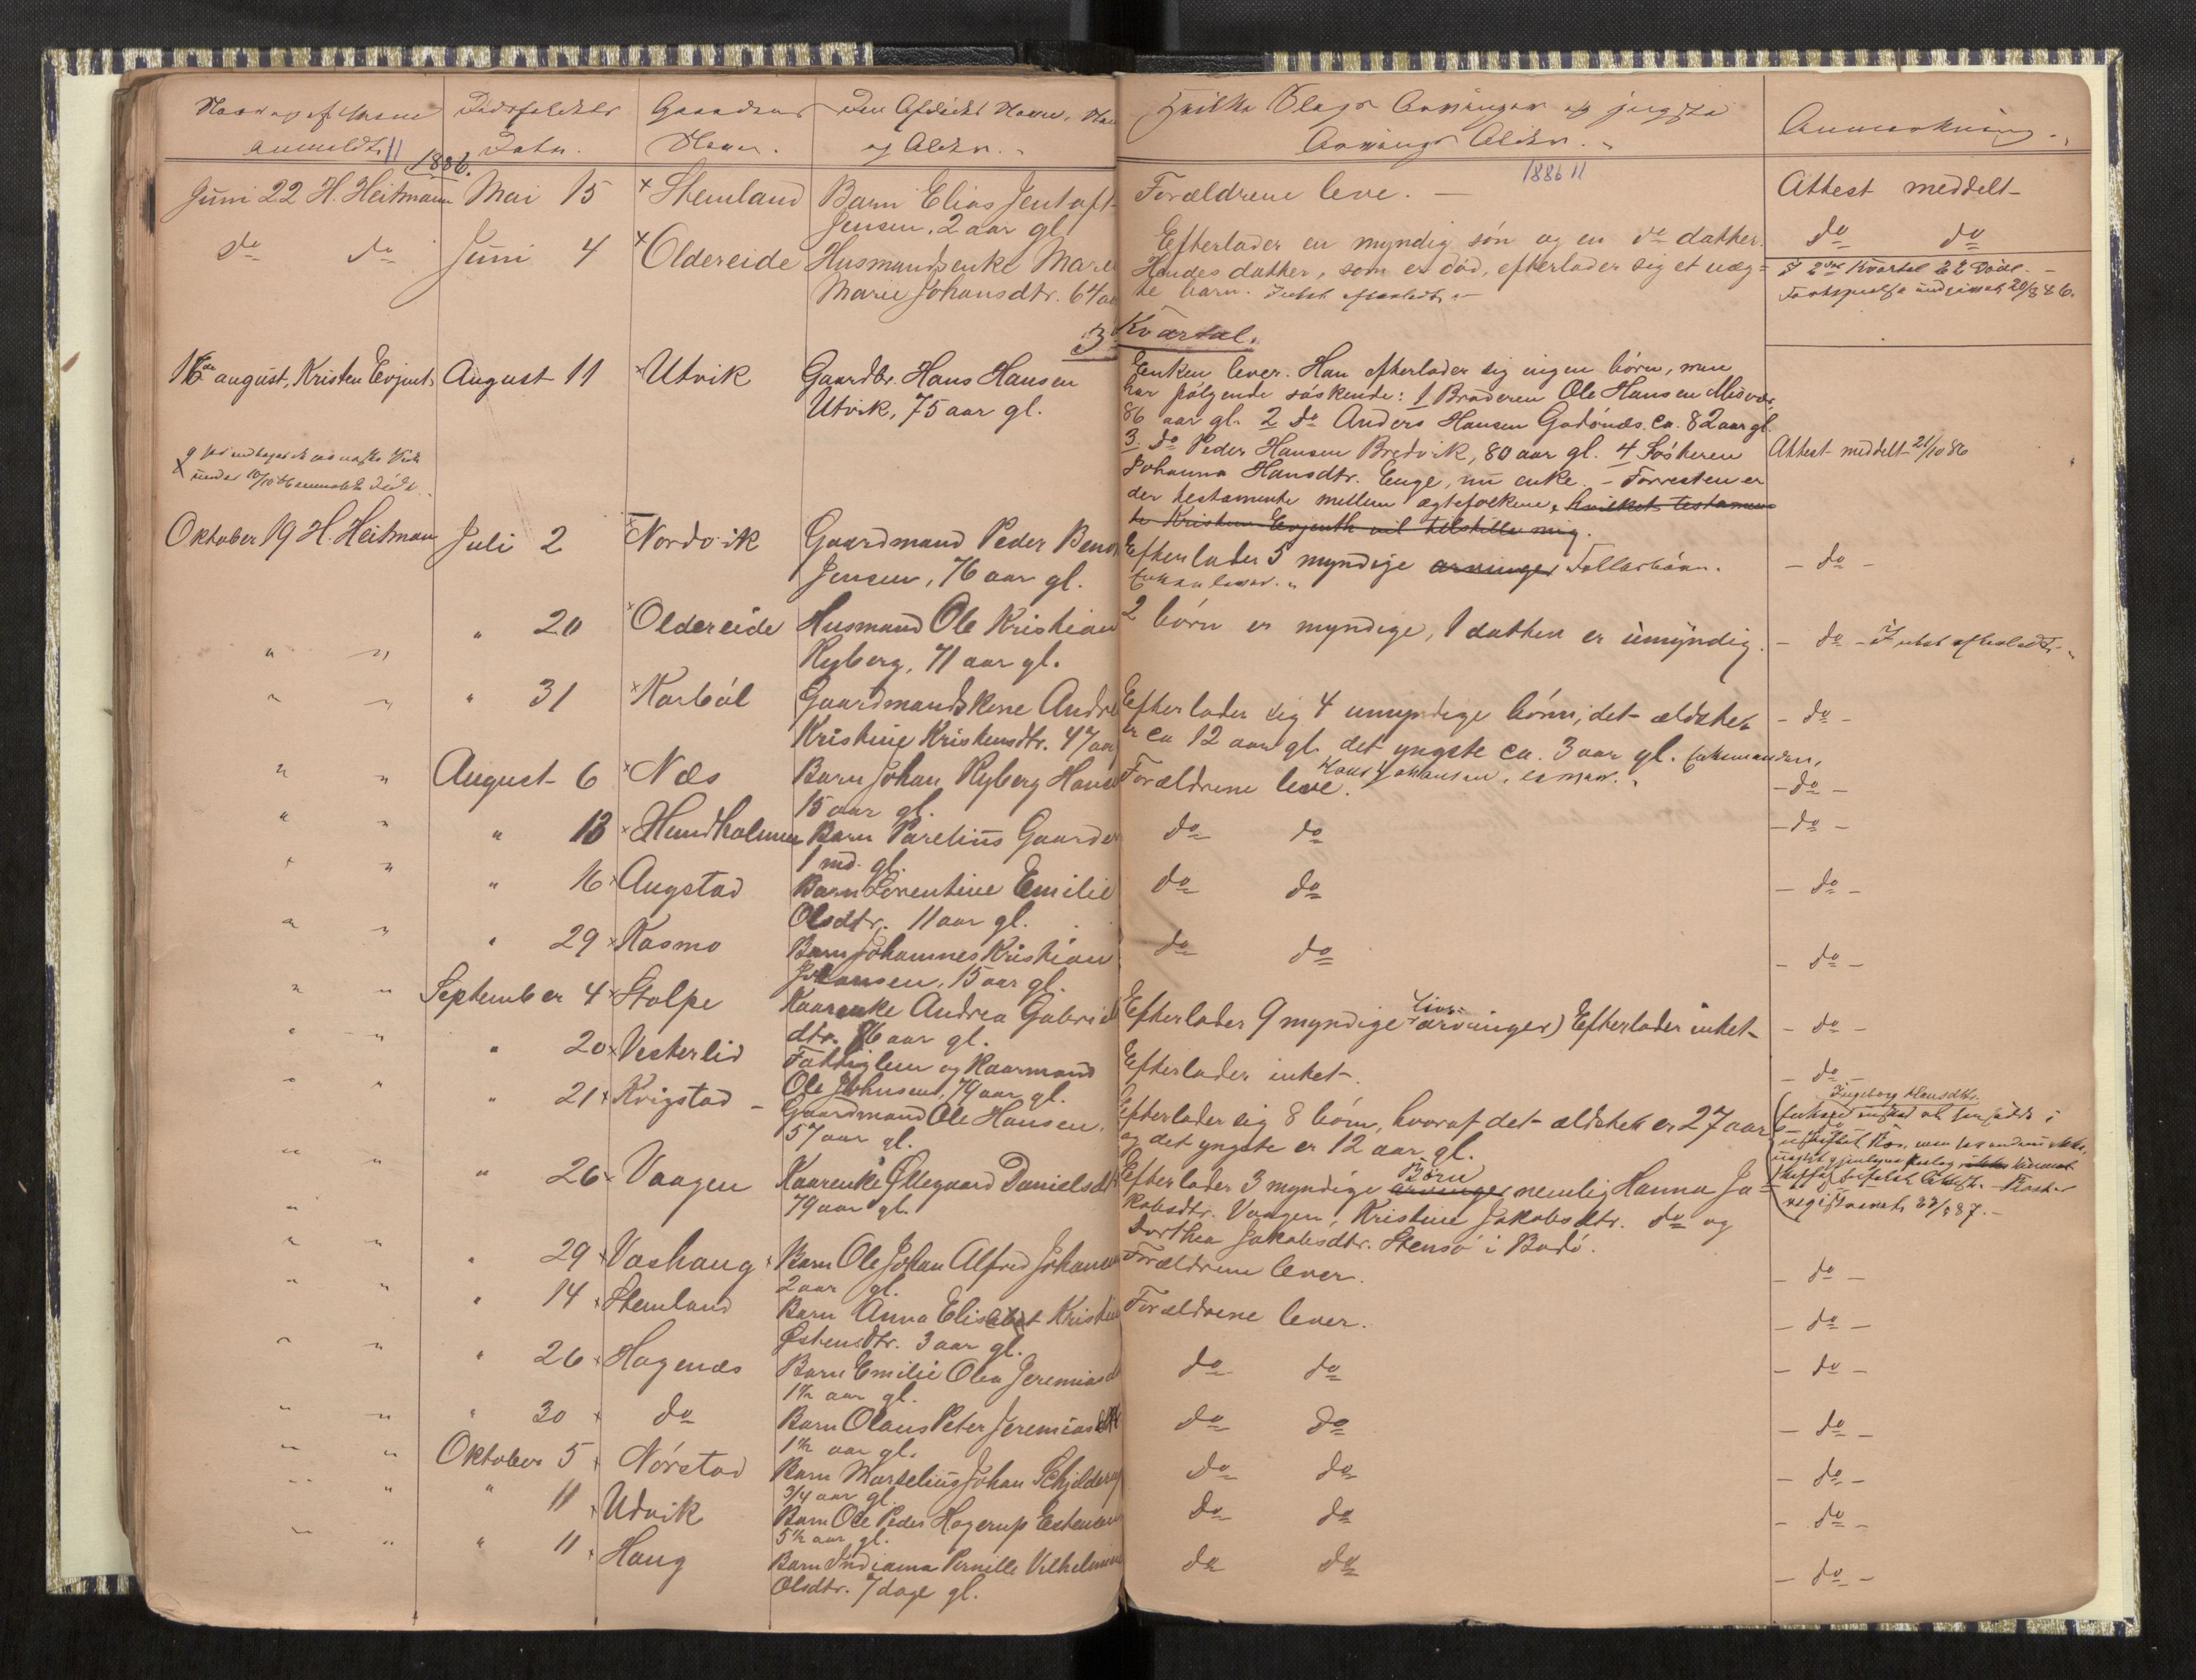 Naar og af hvem Dødsfaldets Gaardens Den Afdødes Navn,
anmeldt. 11 Datum. Navn. og Alder.
1886.
Juni 22 H. Heitmann Mai 15 × Stemland Barn Elias Jentoft
Jensen, 2 aar gl.
do do Juni 4 × Oldereide Husmandsenke Maren
Marie Johansdtr. 64 aar
3
16de august, Kristen Evjenth August 11 × Utvik Gaardbr. Hans Hansen
Utvik, 75 aar gl.
Oktober 19 H. Heitman Juli 2 × Nordvik Gaardmand Peder Benon
Jensen, 76 aar gl.
" 20 × Oldereide Husmand Ole Kristian
" " Ryberg, 71 aar gl.
" " " 31 × Karbøl Gaardmandskone Andrea
Kristine Kristensdtr. 47 aar
" " August 6 × Næs Barn Johan Ryberg Hansen
15 aar gl.
" " " 13 × Hundholmen Barn Parelius Gaarder
1 md. gl.
" " " 16 × Augstad Barn Lorentine Emilie
Olsdtr. 11 aar gl.
" " " 29 × Kosmo Barn Johannes Kristian
Johansen, 15 aar gl.
" " September 4 × Stolpe Kaarenke Andrea Gabriels
dtr. 86 aar gl.
" " " 20 × Vesterlid Fattiglem og Kaarmand
Ole Johnsen, 79 aar gl.
" " " 21 × Kvigstad - Gaardmand Ole Hansen,
57 aar gl.
" " " 26 × Vaagen Kaarenke Ollegaard Danielsdtr
79 aar gl.
" " " 29 × Vashaug Barn Ole Johan Alfred Johansen
2 aar gl.
" " " 14 × Stemland Barn Anna Elisabet Kristine
Østensdtr. 3 aar gl.
" " " 26 × Hogenæs Barn Emilie Olea Jeremiasd
1½ aar gl.
" " " 30 × do Barn Olaus Peter Jeremias
1½ aar gl.
" " Oktober 5 × Nørstad Barn Marselius Johan Schjelderup
3/4 aar gl.
" " " 11 × Udvik Barn Ole Peder Hagerup Estensen
5½ aar gl.
" " " 11 × Haug Barn Indiana Pernille Vilhelmine
Olsdtr. 7 dage gl.
Hvilke Slags Arvinger og yngste Anmærkning.
Arvings Alder.
1886 11
Forældrene leve. — Attest meddelt
Efterlader en myndig søn og en do datter. do do
Hendes datter, som er død, efterlader sig et uæg= I 2det Kvartal 22 Døde.
te barn. Intet efterladt.
Kvartal.
Enken lever. Han efterlader sig ingen børn, men
har følgende søskende: 1 Broderen Ole Hansen Misvær,
86 aar gl. 2 do Anders Hansen Godønæs, ca. 82 aar gl.
3. do Peder Hansen Bredvik, 80 aar gl. 4 Søsteren Attest meddelt 21/10 86
Johanna Hansdtr. Enge, nu enke. - Forresten er
der testamente mellem ægtefolkene, hvilket testamen
te Kristen Evjenth vil tilstille mig.
Efterlader 5 myndige arvinger Fællesbørn. - do -
Enken lever.
2 børn er myndige, 1 datter er umyndig. - do - Intet efterladt.
Efterlader sig 4 umyndige børn; det ældste - do -
er ca 12 aar gl. det yngste ca. 3 aar gl. Enkemanden,
Hans Johansen,
Forældrene leve. - do -
do do - do -
do do - do -
do do - do -
Efterlader 9 myndige Livs- arvinger) Efterlader intet - do -
Efterlader intet. - do -
Ingeborg Hansdtr.
Efterlader sig 8 børn, hvoraf det ældste er 27 aar
og det yngste er 12 aar gl.
Efterlader 3 myndige arvinger Børn nemlig Hanna Ja=
kobsdtr. Vaagen, Kristine Jakobsdtr. do og
Dorthea Jakobsdtr. Stensø i Bodø.
Forældrene lever. - do -
Forældrene lever. - do -
do do - do -
do do - do -
do do - do -
do do - do -
do do - do -